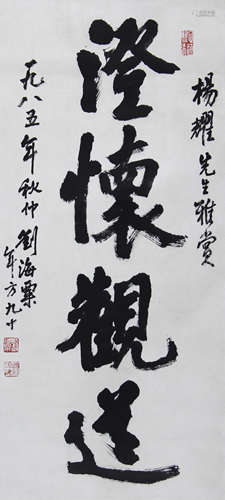 楊耀先生雅賞
澄懷觀道
一九八五年秋仲劉海粟
年方九十